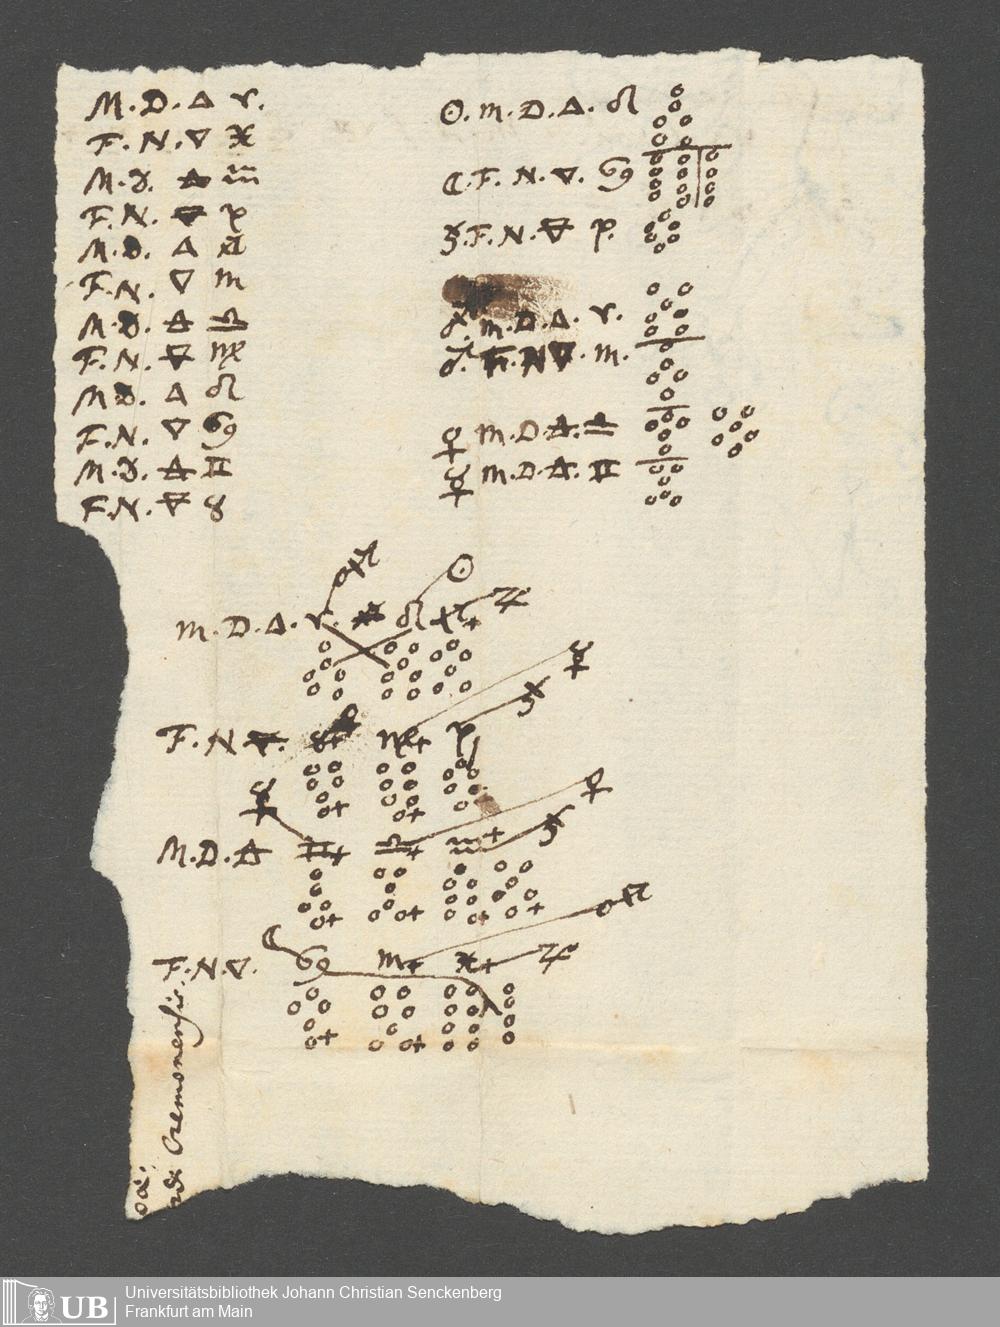 M. D. 🜂 ♈.
F. N. 🜄 ♓
M. D. 🜁 ♒
F. N. 🜃 ♑
M. D. 🜂 ♐
F. N. 🜄 ♏
M. D. 🜁 ♎
F. N. 🜃 ♍
M. D. 🜂 ♌
F. N. 🜄 ♋
M. D. 🜁 ♊
F. N. 🜃 ♉
☉. M. D. 🜂. ♌
☾. F. N. 🜄. ♋
♄. F. N. 🜃 ♑.
♂. M. D. 🜂. ♈.
♂. F. N. 🜄. ♏.
♀ M. D. 🜁. ♎
☿ M. D. 🜁. ♊
♂ ☉
M. D. 🜂. ♈. ♌ ♐+ ♃
☿
♄
F. N. 🜃. ♉+ ♍+ ♑
☿ ♀
♄
M. D. 🜁 ♊+ ♎+ ♒+
☾ ♂
F. N. 🜄. ♋ ♏+ ♓+ ♃
Cremonensis.
UB Universitätsbibliothek Johann Christian Senckenberg
Frankfurt am Main